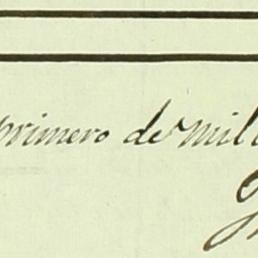 primero de mil